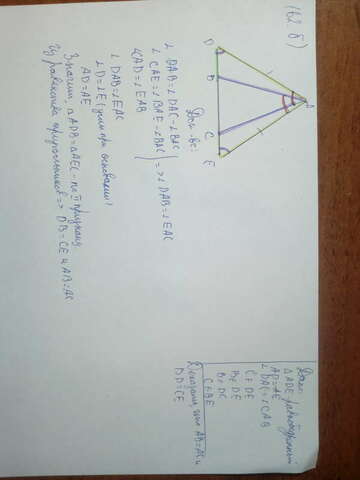 (62 б)
Дано:
△ADE равнобедренный
AD=AE
∠DAC=∠CAB
C∈DE
B∈DE
B∈DC
C∈BE
AB=AC и
DB=CE
D
B
C
E
A
Док-во:
∠DAB=∠DAC-∠BAC
∠CAE=∠BAE-∠BAC
∠CAD=∠EAB
=>∠DAB=∠EAC
∠DAB=∠EAC
∠D=∠E (углы при основании)
AD=AE
Значит, △ADB=△AEC - по II признаку
Из равенства треугольников => DB=CE и AB=AC